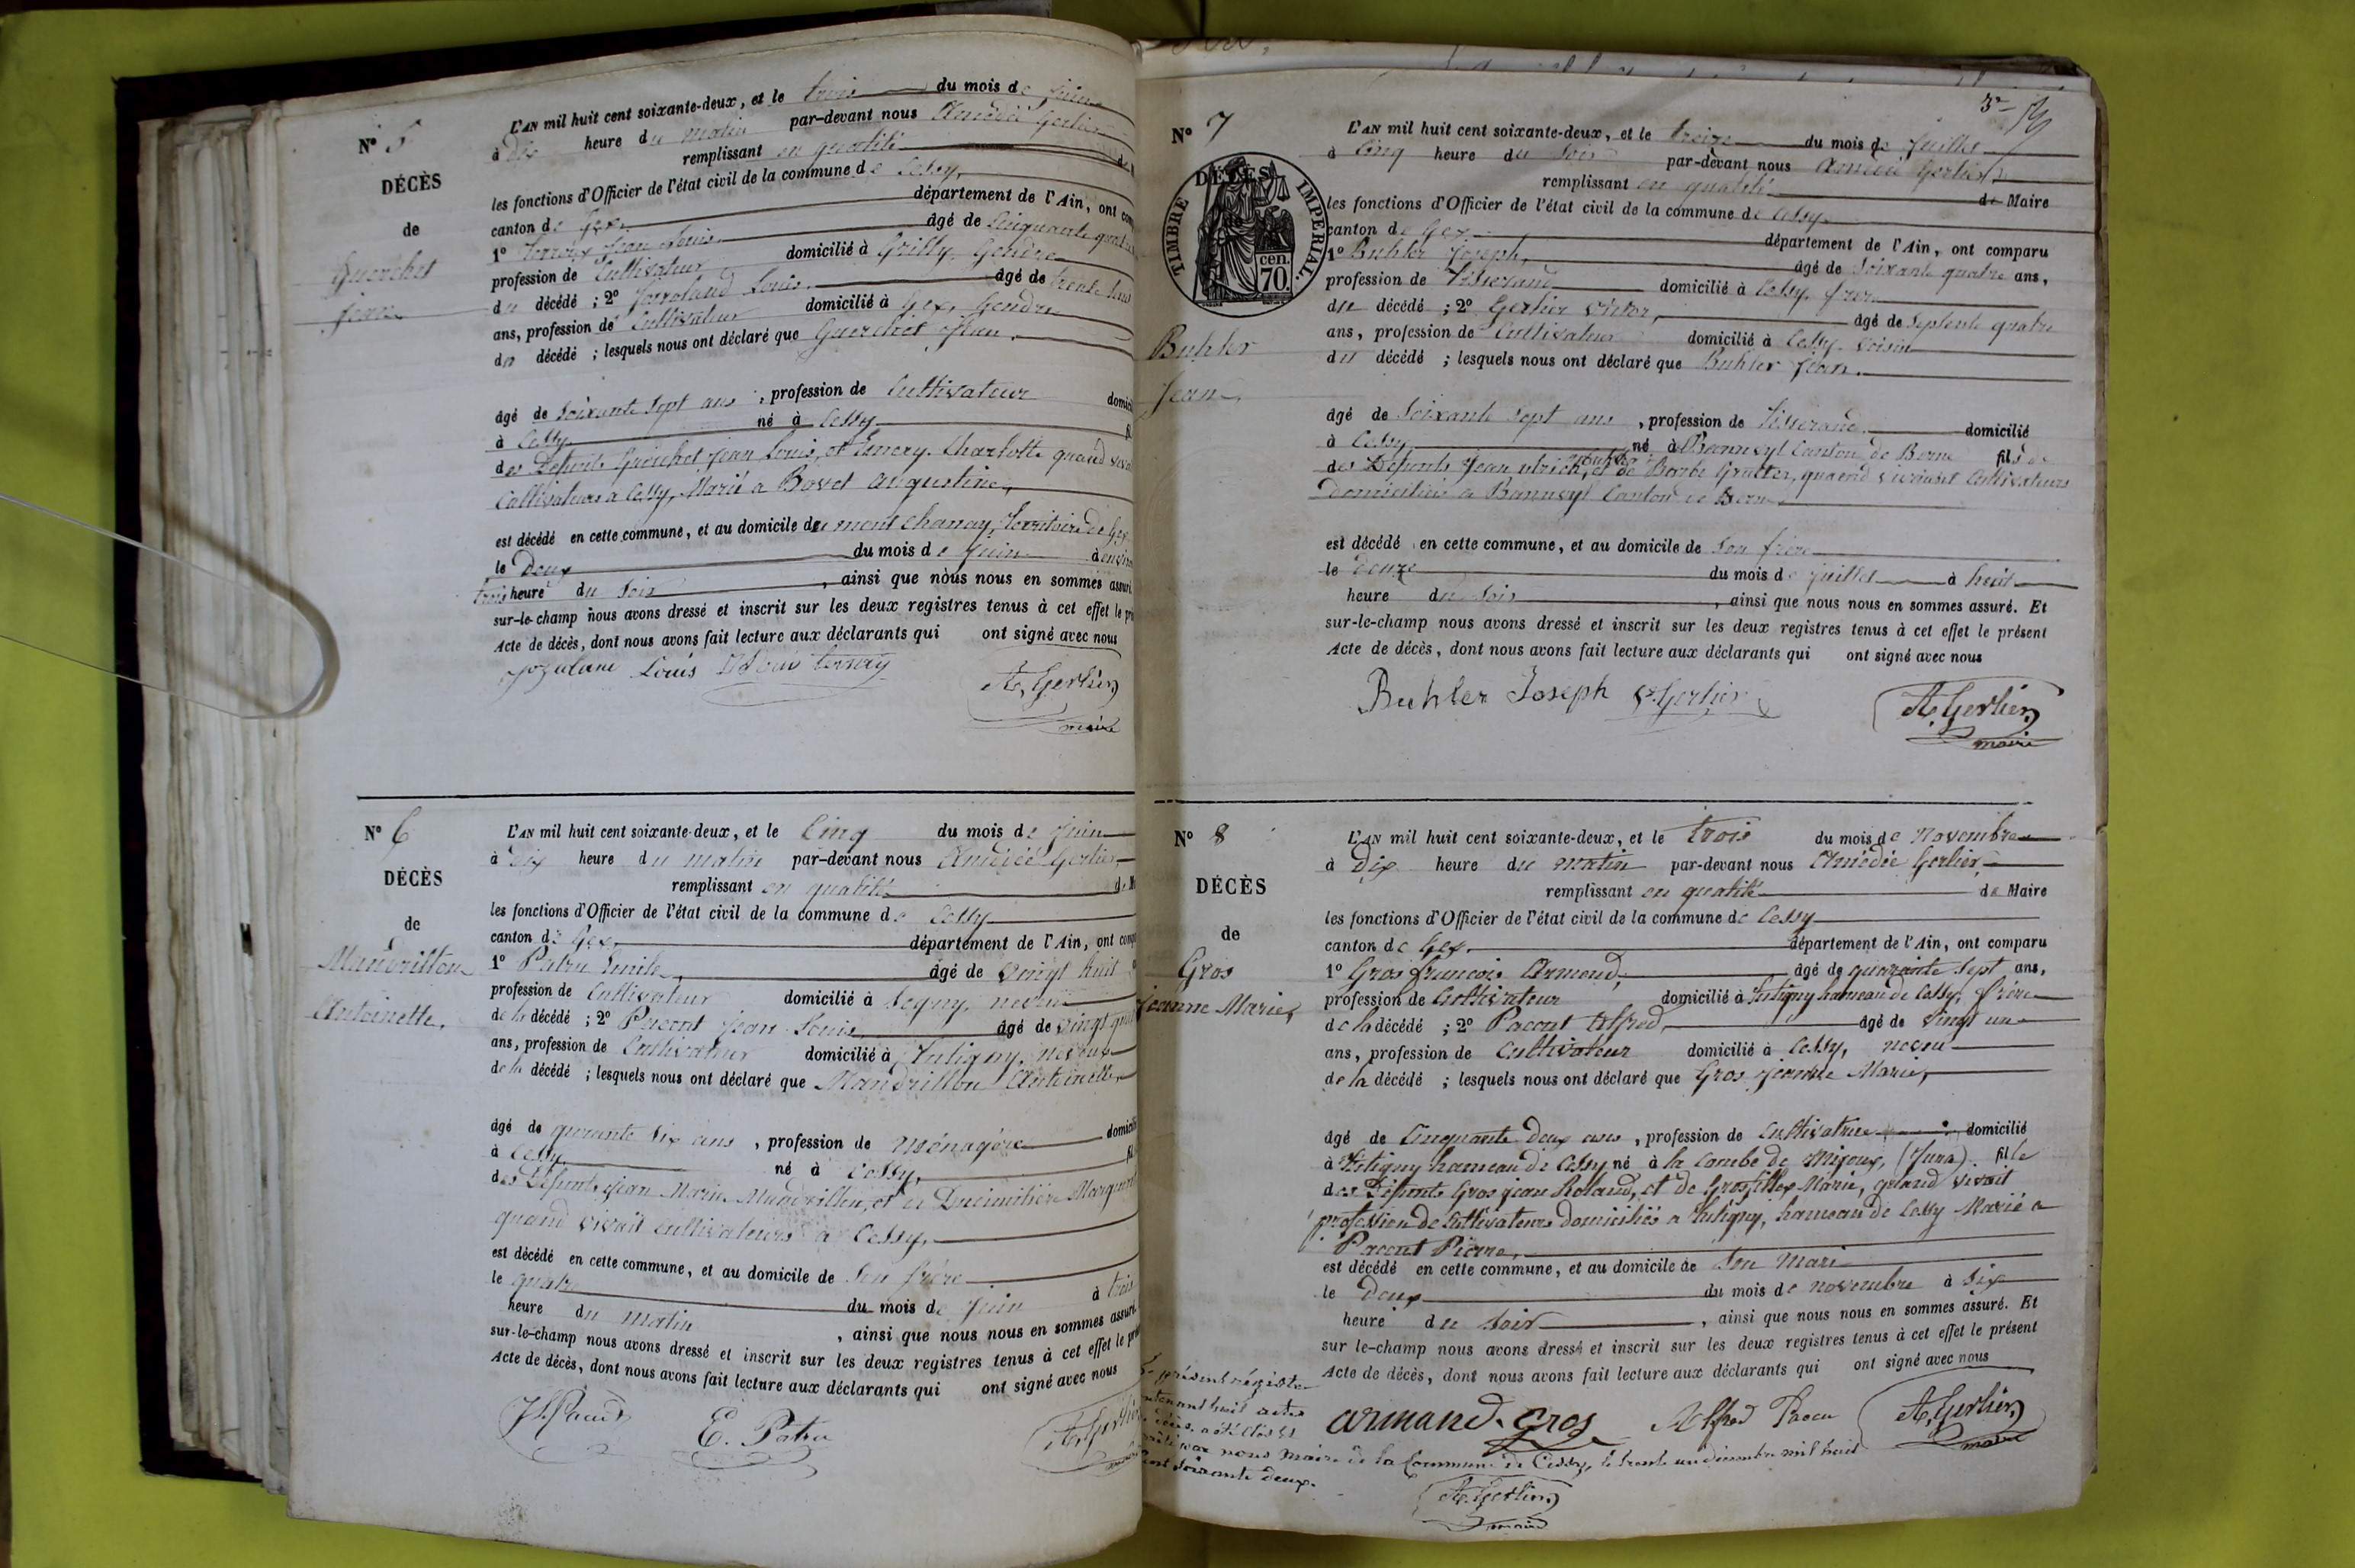 N° 5
DÉCÈS
de
Guerchet
Jean
L'AN mil huit cent soixante-deux, et le trois du mois de juin
à dix heure du matin par-devant nous Amédée Gerlier
remplissant en qualité de
les fonctions d'Officier de l'état civil de la commune de Cessy,
canton de Gex, département de l'Ain, ont
1° Jean Louis, âgé de cinquante quatre
profession de Cultivateur domicilié à Grilly, Gendre
du décédé ; 2° Louis, âgé de trente
ans, profession de Cultivateur domicilié à Gex, Gendre
du décédé ; lesquels nous ont déclaré que Guerchet Jean,
âgé de soixante sept ans, profession de Cultivateur
à Cessy né à Cessy
des Défunts Guerchet Jean Louis, et Emery Charlotte quand
Cultivateurs à Cessy, Marié a Bovet augustine,
est décédé en cette commune, et au domicile du mont chanay, Territoire de Gex
le Deux du mois de Juin à
trois heure du soir, ainsi que nous nous en sommes assuré
sur-le-champ nous avons dressé et inscrit sur les deux registres tenus à cet effet le
Acte de décès, dont nous avons fait lecture aux déclarants qui ont signé avec nous
Louis
A, Gerlier
maire
N° 6
DÉCÈS
de
Mandrillon
Antoinette,
L'AN mil huit cent soixante-deux, et le Cinq du mois de Juin
à dix heure du matin par-devant nous Amédée Gerlier
remplissant en qualité de
les fonctions d'Officier de l'état civil de la commune de Cessy
canton de Gex, département de l'Ain, ont
1° Patru Emile, âgé de vingt huit
profession de Cultivateur domicilié à Segny, neveu
de la décédé ; 2° Pacout Jean Louis, âgé de vingt
ans, profession de Cultivateur domicilié à Tutigny, neveux
de la décédé ; lesquels nous ont déclaré que Mandrillon Antoinette,
âgé de quarante six ans, profession de Ménagère
à Cessy, né à Cessy,
des Défunts Jean Marie Mandrillon, et de
quand vivait cultivateurs a Cessy,
est décédé en cette commune, et au domicile de son frère
le quatre du mois de Juin à trois
heure du matin, ainsi que nous nous en sommes assuré.
sur-le-champ nous avons dressé et inscrit sur les deux registres tenus à cet effet le
Acte de décès, dont nous avons fait lecture aux déclarants qui ont signé avec nous
E. Patru
N° 7
DÉCÈS
TIMBRE IMPÉRIAL.
70 cen.
Buhler
Jean
L'AN mil huit cent soixante-deux, et le treize du mois de Juillet
à cinq heure du soir par-devant nous Amédée Gerlier
remplissant en qualité de Maire
les fonctions d'Officier de l'état civil de la commune de Cessy
canton de Gex département de l'Ain, ont comparu
1° Buhler Joseph, âgé de Soixante quatre ans,
profession de Tisserand domicilié à Cessy, frere
du décédé ; 2° Gerlier Victor, âgé de Septente quatre
ans, profession de Cultivateur domicilié à Cessy. voisin
du décédé ; lesquels nous ont déclaré que Buhler Jean.
âgé de Soixante sept ans, profession de Tisserand domicilié
à Cessy, né à Bannwyl Canton de Berne fils de
des Défunts Jean ulrich, et de Barbe Gruetter, quand vivaient Cultivateurs
domiciliés a Bannwyl Canton de Berne
est décédé en cette commune, et au domicile de son frère
le douze du mois de Juillet à huit
heure du soir, ainsi que nous nous en sommes assuré. Et
sur-le-champ nous avons dressé et inscrit sur les deux registres tenus à cet effet le présent
Acte de décès, dont nous avons fait lecture aux déclarants qui ont signé avec nous
Buhler Joseph Vr. Gerlier
A, Gerlier
maire
N° 8
DÉCÈS
de
Gros
Jeanne Marie,
L'AN mil huit cent soixante-deux, et le trois du mois de Novembre
à Dix heure du matin par-devant nous Amédée Gerlier,
remplissant en qualité de Maire
les fonctions d'Officier de l'état civil de la commune de Cessy
canton de Gex. département de l'Ain, ont comparu
1° Gros françois Armand, âgé de quarante sept ans,
profession de Cultivateur domicilié à Tutigny hameau de Cessy, frère
de la décédé ; 2° Pacout Alfred, âgé de vingt un
ans, profession de Cultivateur domicilié à Cessy, neveu
de la décédé ; lesquels nous ont déclaré que Gros Jeanne Marie,
âgé de Cinquante deux ans, profession de Cultivatrice domicilié
à Tutigny hameau de Cessy né à la Combe de Mijoux, (Jura). fille
des Défunts Gros jean Roland, et de Grosfillex Marie, quand vivait
profession de Cultivateurs domiciliés a Tutigny, hameau de Cessy Marié a
Pacout Pierre,
est décédé en cette commune, et au domicile de son mari
le Deux du mois de novembre à six
heure du soir, ainsi que nous nous en sommes assuré. Et
sur le-champ nous avons dressé et inscrit sur les deux registres tenus à cet effet le présent
Acte de décès, dont nous avons fait lecture aux déclarants qui ont signé avec nous
armand. Gros Alfred Pacou A, Gerlier
maire
présent registre
huit actes
décès, a été clos et
par nous Maire de la Commune de Cessy, le trente un décembre mil huit
cent soixante deux.
A. Gerlier
maire